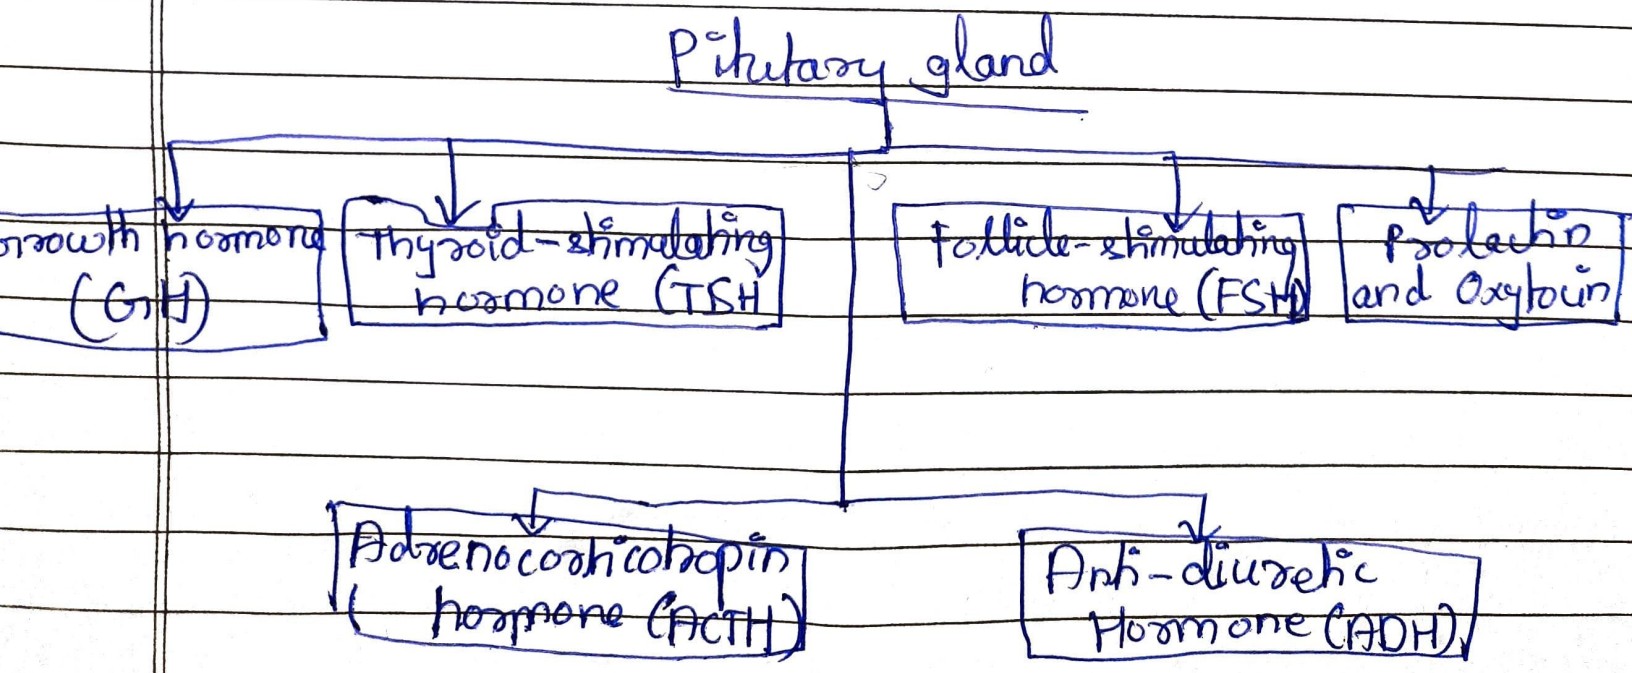 Pitutary gland
Growth hormone
(GH)
Thyroid-stimulating
hormone (TSH
Follicle-stimulating
hormone (FSH)
Prolactin
and Oxytocin
Adrenocorticotropin
hormone (ACTH)
Anti-diuretic
Hormone (ADH)